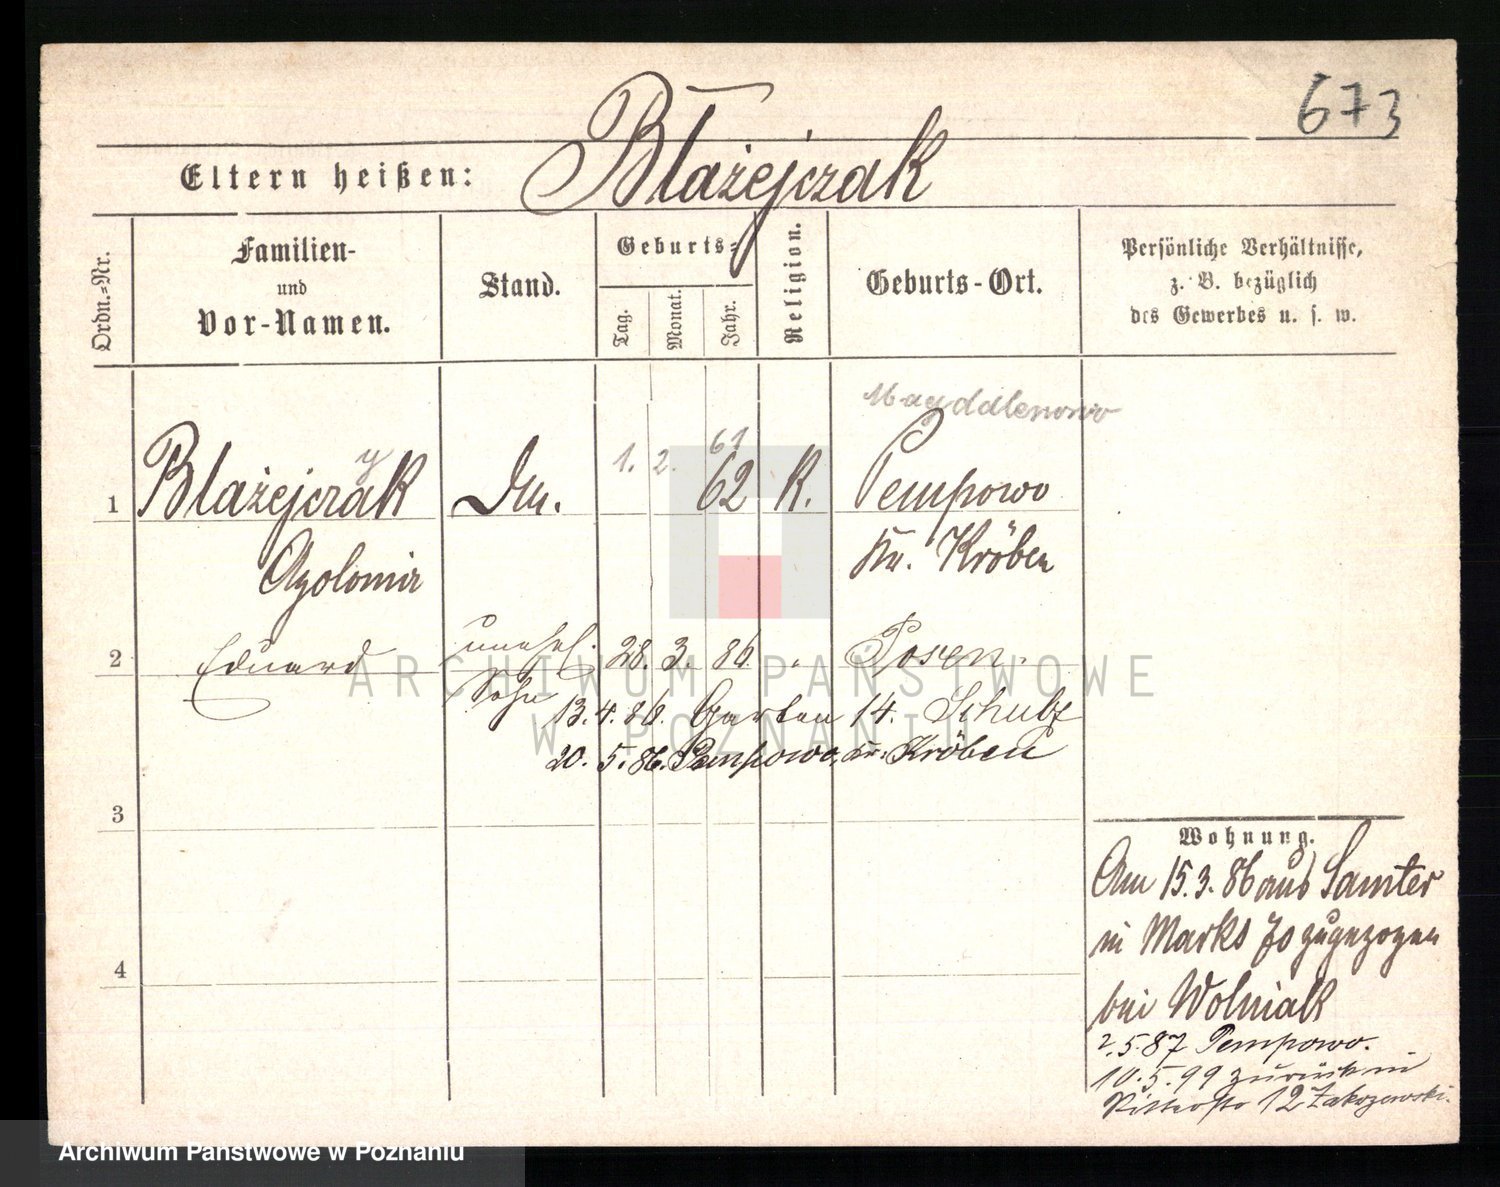 673
Eltern heißen: Błażejczak
Ordn.=Nr.
Familien-
und
Vor-Namen.
Stand.
Geburts=
Tag.
Monat.
Jahr.
Religion.
Geburts-Ort.
Persönliche Verhältnisse,
z. B. bezüglich
des Gewerbes u. s. w.
Magdalenowo
y 1. 2. 61
1 Błażejczak 62 K. Pempowo
Kr. Kröben
2 Eduard unehel. 28. 3. 86. " Posen.
Sohn
13.4.86. Garten 14. Schulz
20. 5. 86. Pempowo, Kr. Kröben
3
4
Wohnung.
Am 15.3.86 aus Samter
in Markt 70 zugezogen
bei Wolniak
2.5.87 Pempowo.
10.5.99 zurück in
Ritterstr 12 Zakrzewski.
ARCHIWUM PAŃSTWOWE
W POZNANIU
Archiwum Państwowe w Poznaniu